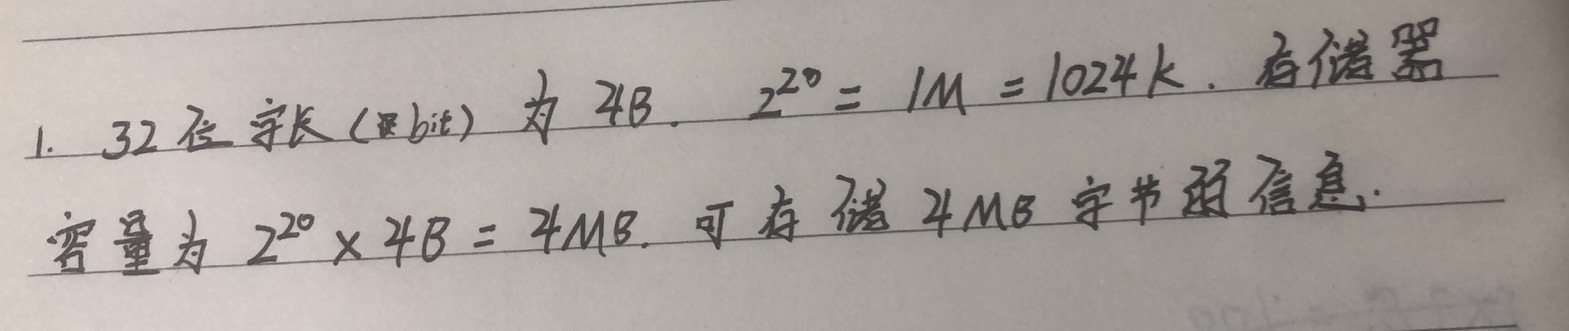 1. 32位字长(bit)为4B. 2²⁰=1M=1024k. 存储器
容量为2²⁰×4B=4MB. 可存储4MB字节的信息.